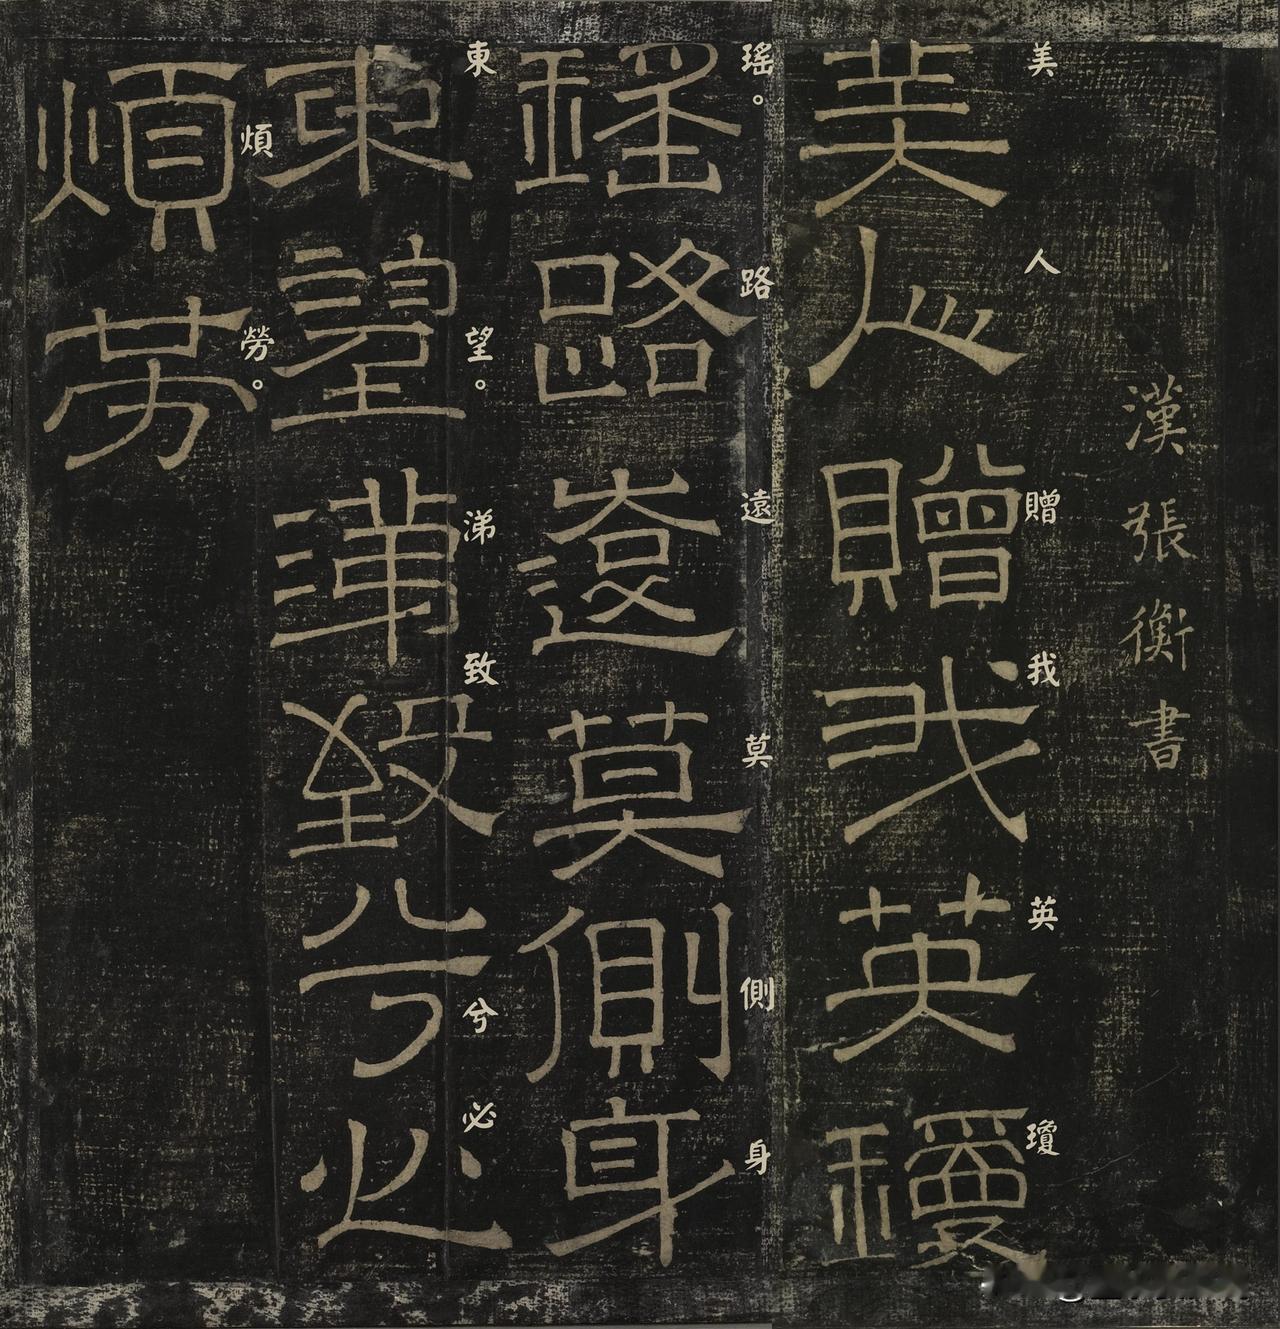 漢張衡書
美人贈我英瓊
美人贈我英瓊
瑤。路遠莫側身
瑤路遠莫側身
東望。涕致兮必
東望涕致兮必
煩勞。
煩勞